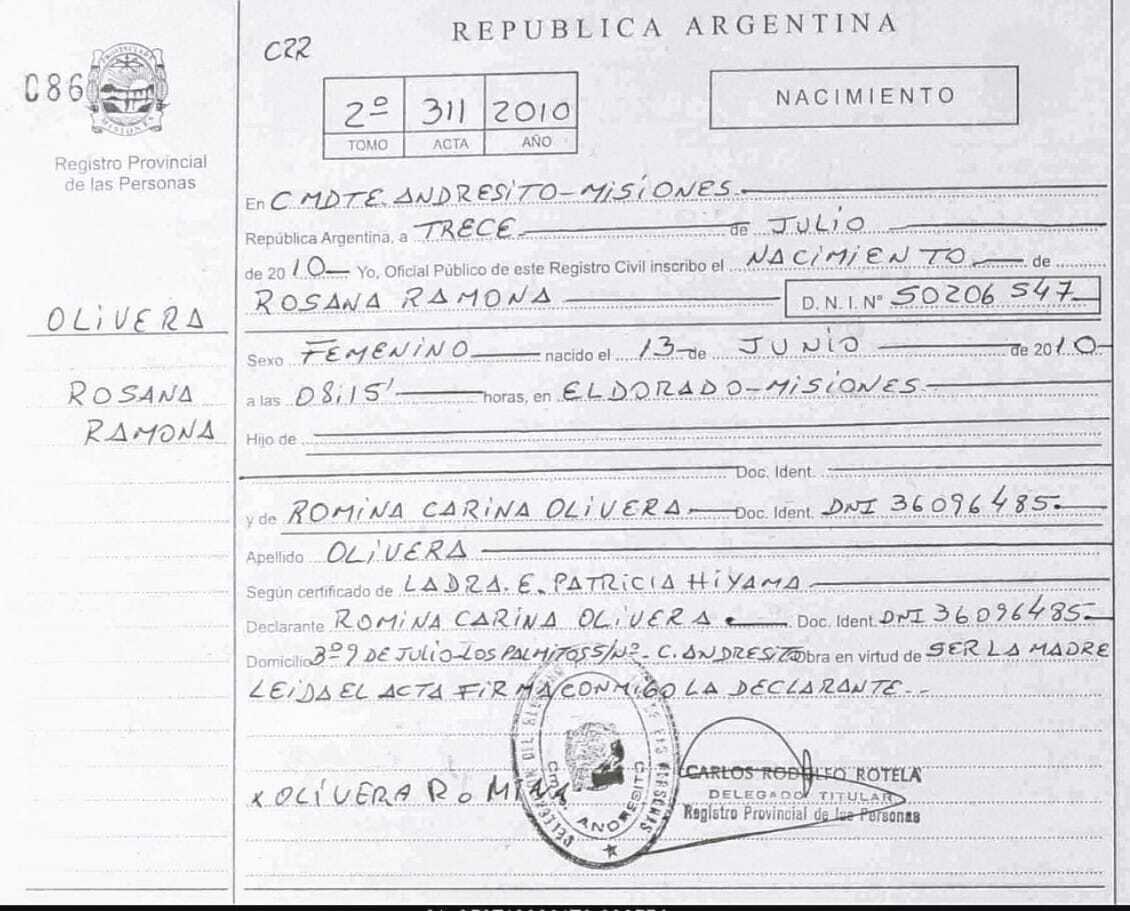 REPUBLICA ARGENTINA
C22
086
2º 311 2010
TOMO ACTA AÑO
NACIMIENTO
MISIONES
Registro Provincial
de las Personas
En C. MDTE. ANDRESITO - MISIONES
República Argentina, a TRECE de JULIO
de 2010 Yo, Oficial Público de este Registro Civil inscribo el NACIMIENTO de
ROSANA RAMONA D. N. I. Nº 50206547
OLIVERA
Sexo FEMENINO nacido el 13 de JUNIO de 2010
ROSANA
a las 08:15' horas, en ELDORADO - MISIONES
RAMONA
Hijo de
Doc. Ident.
y de ROMINA CARINA OLIVERA Doc. Ident. DNI 36096485.
Apellido OLIVERA
Según certificado de LA DRA. E. PATRICIA HIYAMA
Declarante ROMINA CARINA OLIVERA Doc. Ident. DNI 36096485
Domicilio Bº 9 DE JULIO - LOS PALMITOS S/Nº - C. ANDRESITO Obra en virtud de SER LA MADRE
LEIDA EL ACTA FIRMA CONMIGO LA DECLARANTE - -
x OLIVERA ROMINA
ANDRESITO
CARLOS RODOLFO ROTELA
DELEGADO TITULAR
Registro Provincial de las Personas